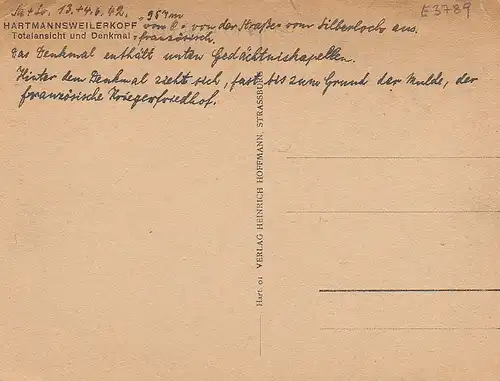 Sa + So. 13. + 14. 6. 42.
E 3789
HARTMANNSWEILERKOPF 956 m von O - von der Straße vom Silberloch aus.
Totalansicht und Denkmal - französisch.
Das Denkmal enthält unten Gedächtniskapellen.
Hinter dem Denkmal zieht sich, fast bis zum Grund der Mulde, der
französische Kriegerfriedhof.
Hart 01 VERLAG HEINRICH HOFFMANN, STRASSBURG